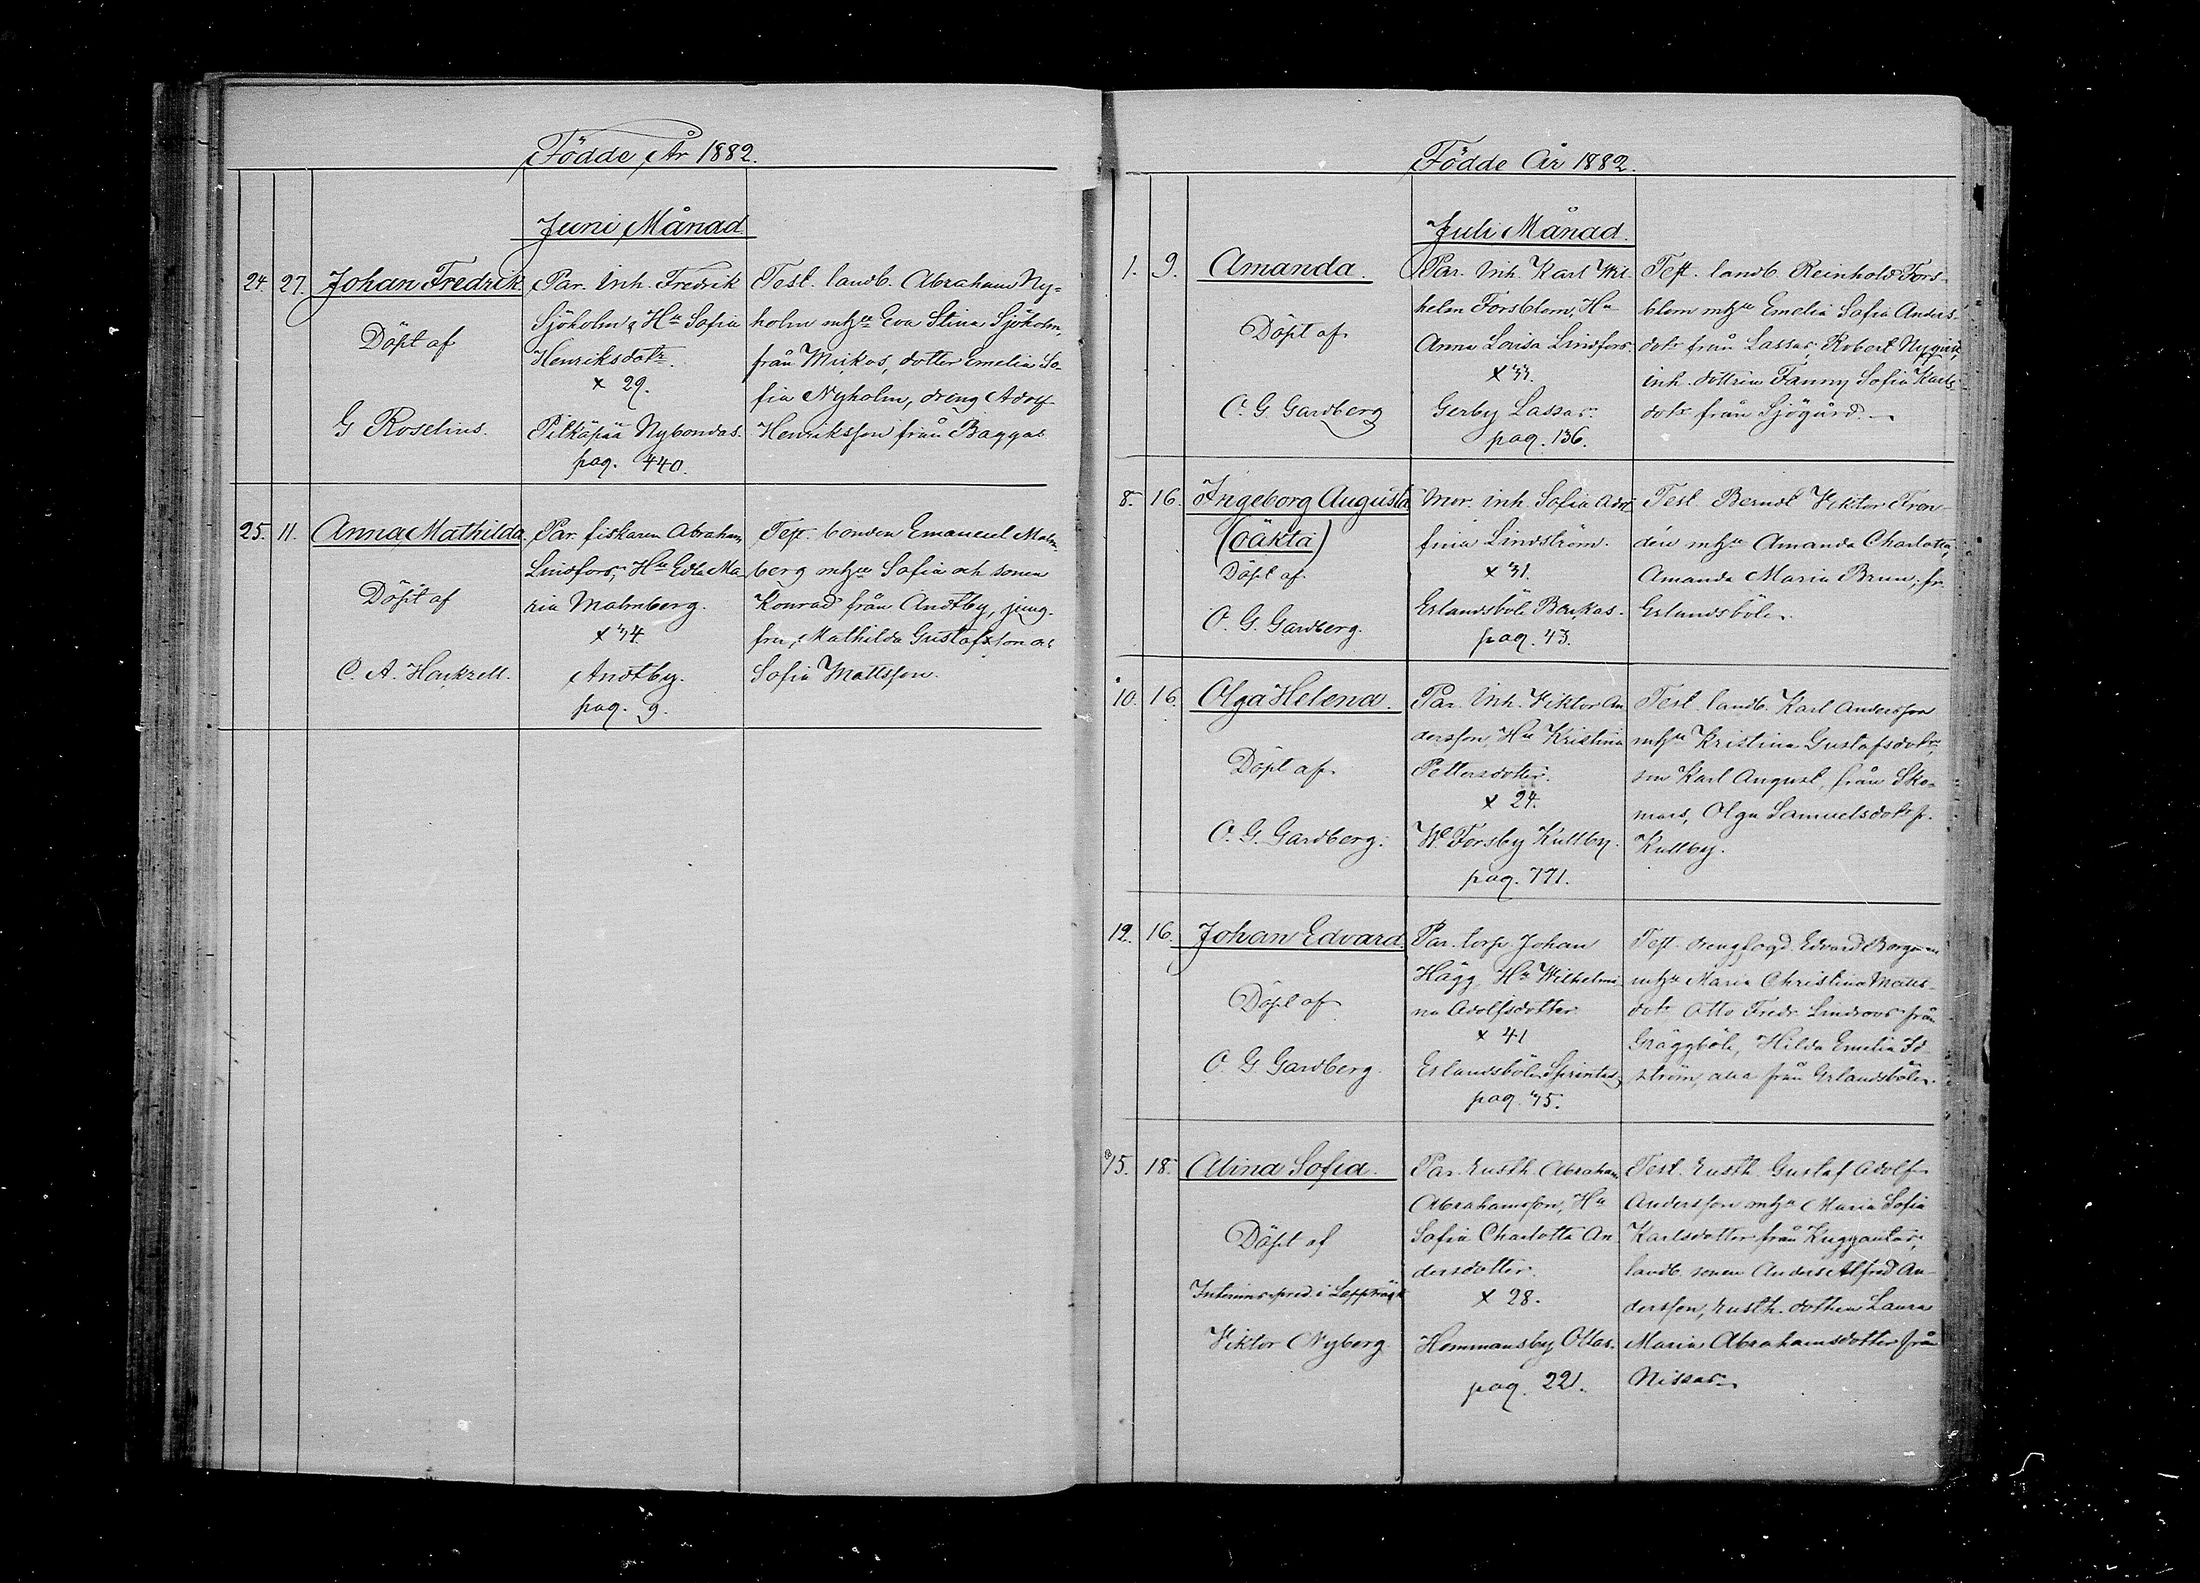 Födde År 1882.
Juni Månad
24. 27. Johan Fredrik
Döpt af
G Roselius.
Par. Inh. Fredrik
Sjöholm, Hu Sofia
Henriksdotr.
x 29.
Pitkäpää Nybondas.
pag. 440.
Test. landb. Abraham Ny-
holm mhu Eva Stina Sjöholm,
från Mickos, dotter Emelia So-
fia Nyholm, dreng Adolf
Henriksson från Baggas
25. 11. Anna Mathilda
Döpt af
C. A. Hackzell.
Par. fiskaren Abraham
Lindfors, Hu Edla Ma
ria Malmberg.
x 34
Andtby.
pag. 9.
Test. bonden Emanuel Malm-
berg mhu Sofia och sonen
Konrad från Andtby, jung-
fru Mathilda Gustafsson och
Sofia Mattsson.
Födde År 1882.
Juli Månad.
1. 9. Amanda.
Döpt af
O. G. Gardberg
Par. Inh. Karl Wil
helm Forsblom, Hu
Anna Lovisa Lindfors.
x 33.
Gerby Lassas.
pag. 136.
Test. landb. Reinhold Fors-
blom mhu Emelia Sofia Anders
dotr från Lassas, Robert
inh. dottren Fanny Sofia Karls-
dotr från Sjögård.
8. 16. Ingeborg Augusta
(oäkta)
Döpt af
O. G. Gardberg.
Mor. inh. Sofia Adol
fina Lindström.
x 31.
Erlandsböle Backas.
pag. 43.
Test. Berndt Viktor Fron-
dén mhu Amanda Charlotta,
Amanda Maria Brun, fr.
Erlandsböle.
10. 16. Olga Helena.
Döpt af
O. G. Gardberg.
Par. Inh. Viktor An
dersson, Hu Kristina
Pettersdotter.
x 24.
W. Forsby Kullby.
pag. 771.
Test. landb. Karl Andersson
mhu Kristina Gustafsdotr,
son Karl August, från Sko-
mars, Olga Samuelsdotr fr.
Kullby.
12. 16. Johan Edvard.
Döpt af
O. G. Gardberg.
Par. torp. Johan
Hägg, Hu Wilhelmi
na Adolfsdotter
x 41
Erlandsböle Sprintas
pag. 45.
Test. drengfogd. Edvard
mhu Maria Christina Matts-
dotr Otto Fredr. Lindroos från
Gräggböle, Hilda Emelia
ström, alla från Erlandsböle.
15. 18. Alina Sofia.
Döpt af
Interims pred. i Lappträsk
Viktor Nyberg.
Par. Rusth. Abraham
Abrahamsson, Hu
Sofia Charlotta An
dersdotter.
x 28.
Hommansby Ollas.
pag. 221.
Test. Rusth. Gustaf Adolf
Andersson mhu Maria Sofia
Karlsdotter från
landb. sonen Anders Alfred An-
dersson, rusth. dottren Laura
Maria Abrahamsdotter från
Nissas.